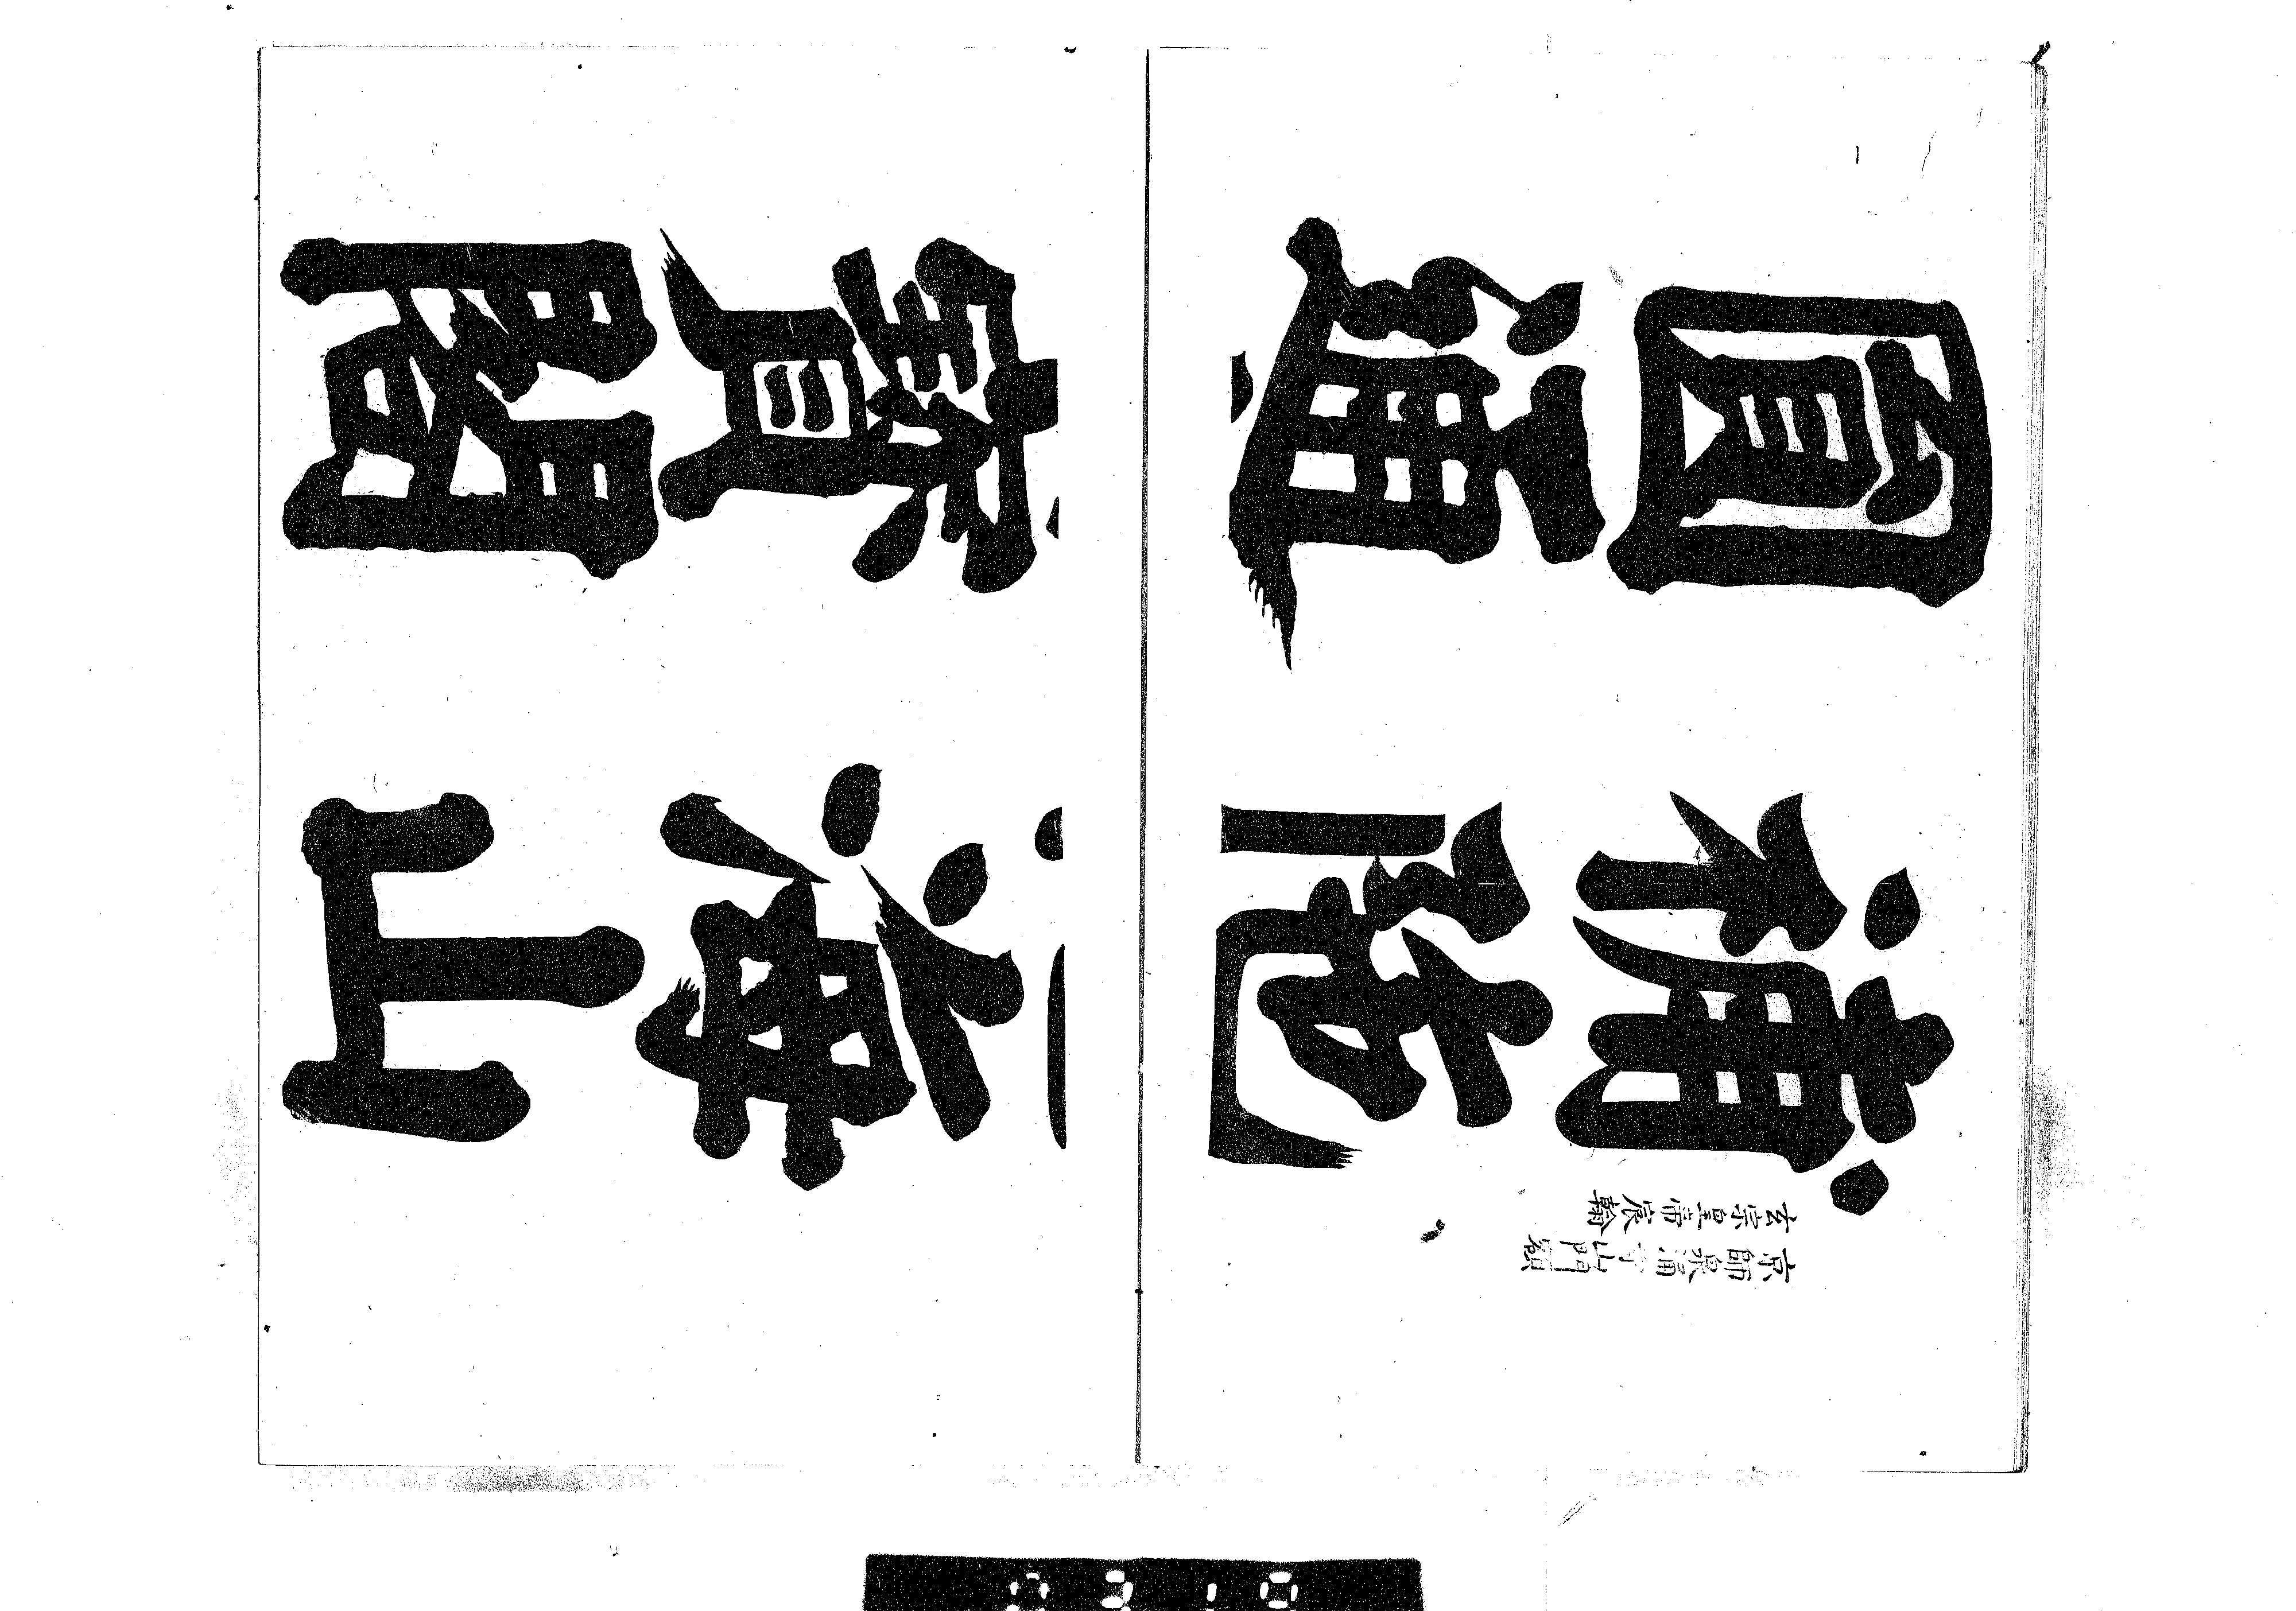 京師泉涌寺山門額
玄宗皇帝宸翰
補陀海山
圓通寶閣